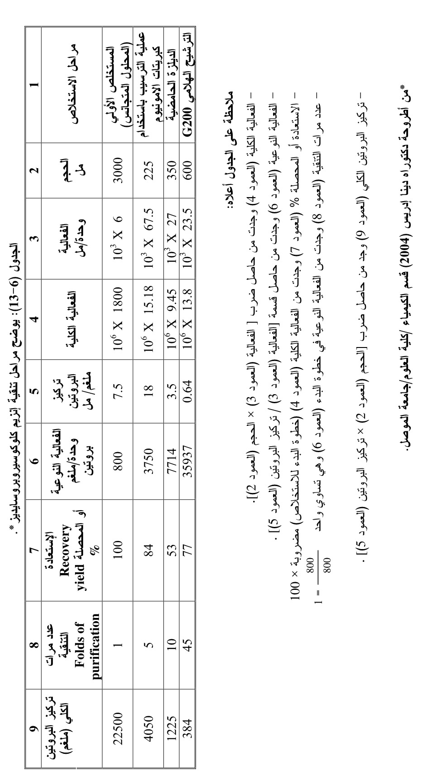 الجدول (6-13): يوضح مراحل تنقية إنزيم كلوكوسيروبروسايديز *.
1 2 3 4 5 6 7 8 9
مراحل الاستخلاص | الحجم مل | الفعالية وحدة/مل | الفعالية الكلية | تركيز البروتين ملغم/ مل | الفعالية النوعية وحدة/ملغم بروتين | الإستعادة أو المحصلة Recovery yield % | عدد مرات التنقية Folds of purification | تركيز البروتين الكلي (ملغم)
المستخلص الأولي (المحلول المتجانس) | 3000 | 10³ X 6 | 10⁶ X 1800 | 7.5 | 800 | 100 | 1 | 22500
عملية الترسيب باستخدام كبريتات الامونيوم | 225 | 10³ X 67.5 | 10⁶ X 15.18 | 18 | 3750 | 84 | 5 | 4050
الديلزة الحامضية | 350 | 10³ X 27 | 10⁶ X 9.45 | 3.5 | 7714 | 53 | 10 | 1225
الترشيح الهلامي G200 | 600 | 10³ X 23.5 | 10⁶ X 13.8 | 0.64 | 35937 | 77 | 45 | 384
ملاحظة على الجدول أعلاه:
– الفعالية الكلية (العمود 4) وجدت من حاصل ضرب [ الفعالية (العمود 3) × الحجم (العمود 2)].
– الفعالية النوعية (العمود 6) وجدت من حاصل قسمة [الفعالية (العمود 3) / تركيز البروتين (العمود 5)] .
– الاستعادة أو المحصلة % (العمود 7) وجدت من الفعالية الكلية (العمود 4) (خطوة البدء للاستخلاص) مضروبة × 100
– عدد مرات التنقية (العمود 8) وجدت من الفعالية النوعية في خطوة البدء (العمود 6) وهي تساوي واحد 800/800 = 1
– تركيز البروتين الكلي (العمود 9) وجد من حاصل ضرب [الحجم (العمود 2) × تركيز البروتين (العمود 5)] .
*من أطروحة دكتوراه دينا إدريس (2004) قسم الكيمياء /كلية العلوم/جامعة الموصل.